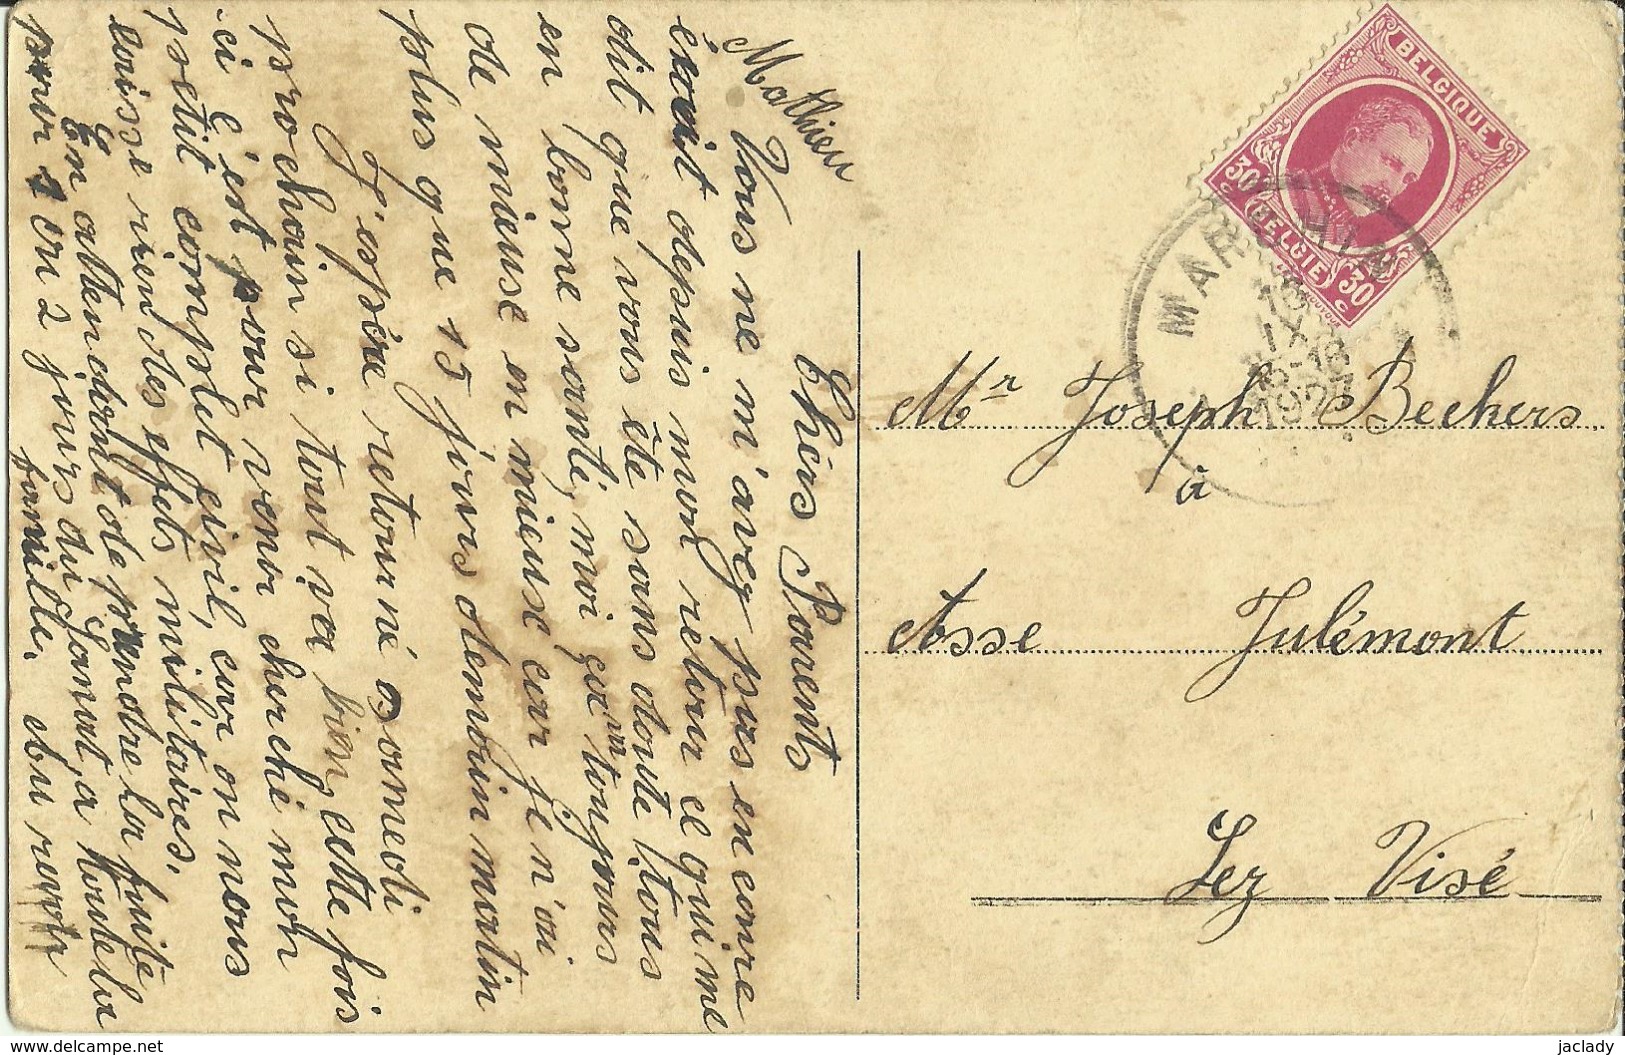 Chérs Parents
Vous ne m'avez pas encore
écrit depuis mon retour ce qui me
dit que vous ête sans doute tous
en bonne santé, moi ça va toujours
de mieuse en mieuse car je n'ai
plus que 15 jours demain matin
J'espére retourné samedi
prochain si tout va bien, cette fois
-ci c'est pour venir cherché mon
petit complet civil, car on nous
laisse rien des effets militaires.
En attendant de prendre la fuite
pour 1 ou 2 jours du Sanat, a toute la
famille. Au revoir
Mathieu
BELGIQUE
30 BELGIE 30
18
IX
1927
Mr Joseph Beckers
à
Asse Julémont
Lez Visé
www.delcampe.net
jaclady